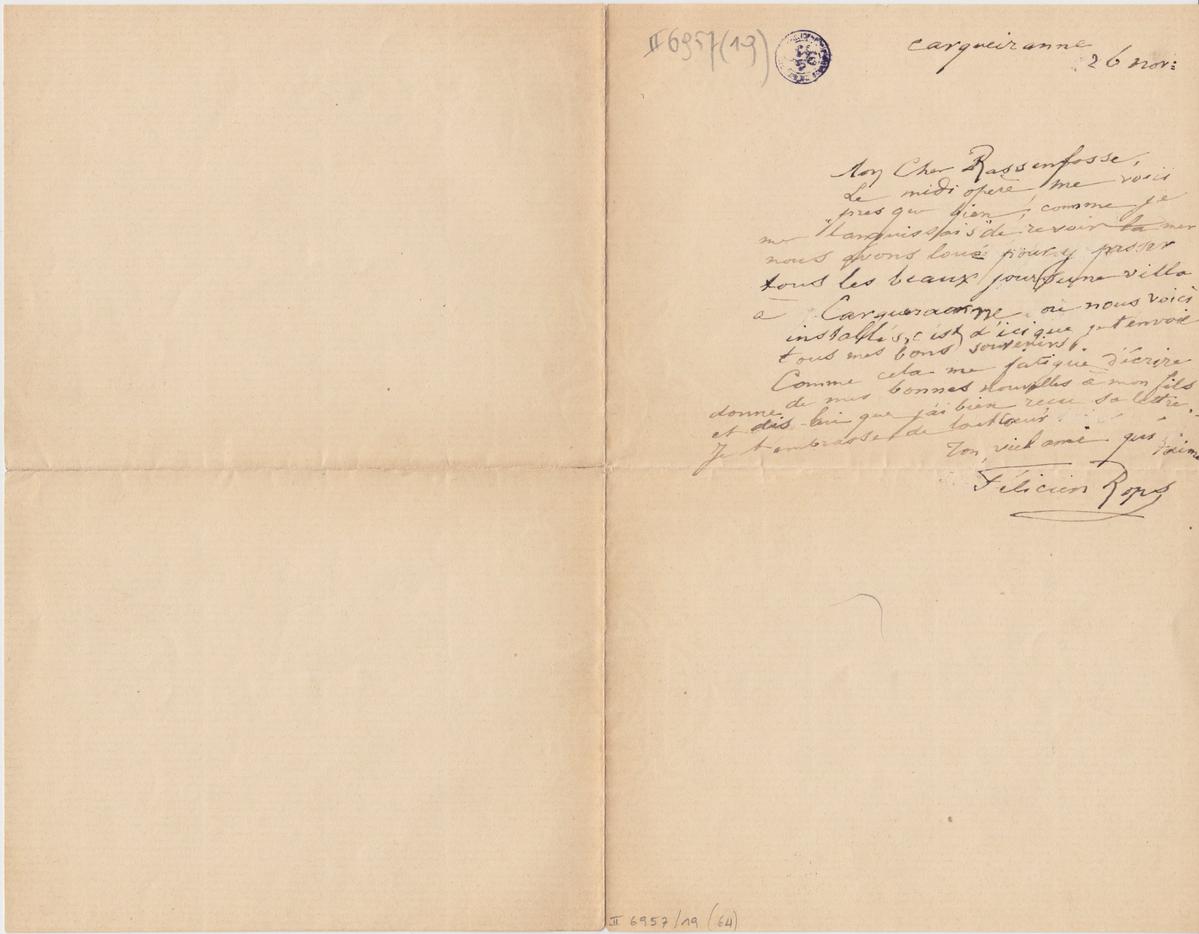 II 6957(19)
Carqueiranne
26 nov:
Mon Cher Rassenfosse,
Le midi opère me voici
presqu bien, comme je
me "languissais" de revoir la mer
nous avons loué pour y passer
tous les beaux jours une villa
à Carqueranne, où nous voici
installés, c'est d'ici que je t'envoie
tous mes bons souvenirs.
Comme cela me fatigue d'écrire
donne de mes bonnes nouvelles à mon fils
et dis-lui que j'ai bien reçu sa lettre.
Je t'embrasse de tout coeur
Ton vieil ami qui t'aime
Félicien Rops
II 6957/19 (64)